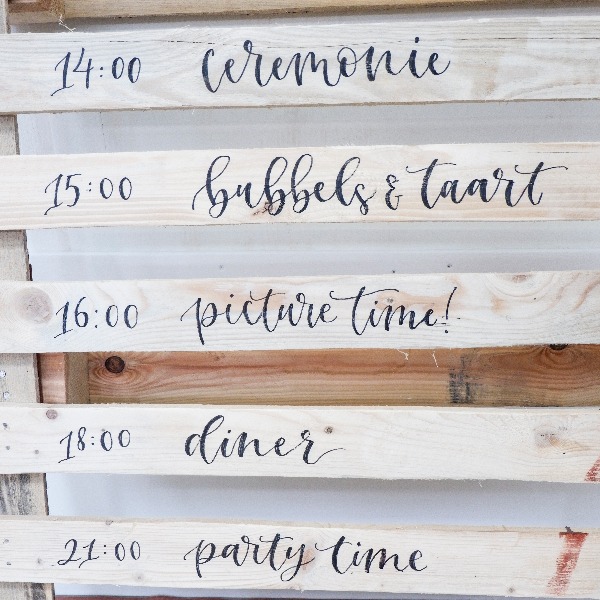 14:00 ceremonie
15:00 bubbels & taart
16:00 picture time!
18:00 diner
21:00 party time